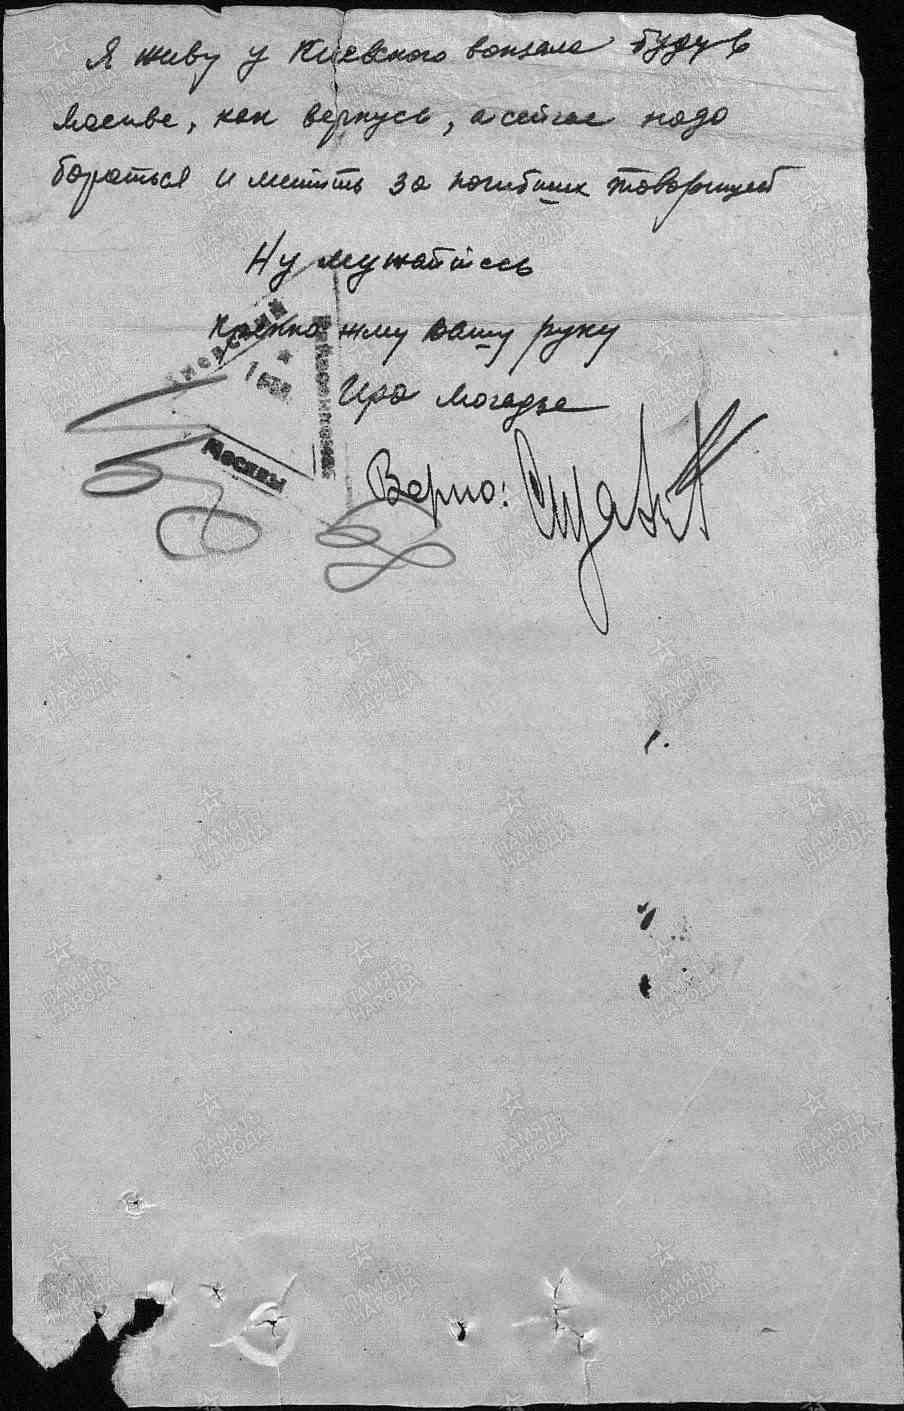 Я живу у Киевского вокзала буду в
Москве, как вернусь, а сейчас надо
бороться и мстить за погибших товарищей
Ну мужайтесь
Крепко жму вашу руку
Ира
Верно:
Киевский
Москвы
ПАМЯТЬ НАРОДА